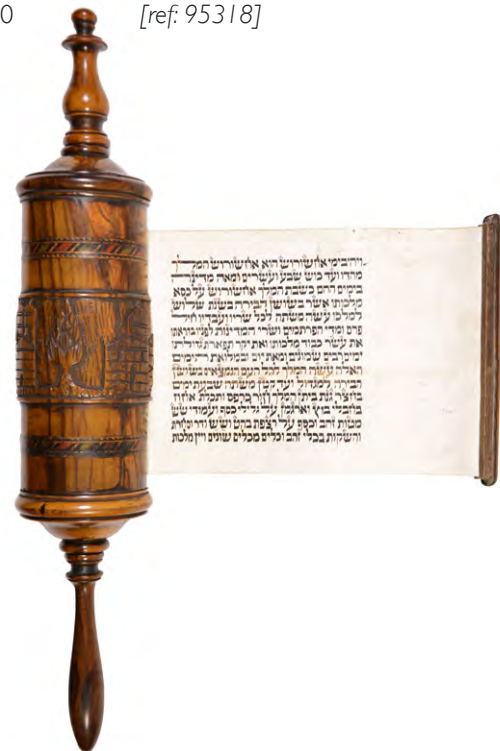 0 [ref: 95318]
ויהי בימי אחשורוש הוא אחשורוש המלך
מהדו ועד כוש שבע ועשרים ומאה מדינה
בימים ההם כשבת המלך אחשורוש על כסא
מלכותו אשר בשושן הבירה בשנת שלוש
למלכו עשה משתה לכל שריו ועבדיו חיל
פרס ומדי הפרתמים ושרי המדינות לפניו בהראתו
את עשר כבוד מלכותו ואת יקר תפארת גדולתו
ימים רבים שמונים ומאת יום ובמלואת הימים
האלה עשה המלך לכל העם הנמצאים בשושן
הבירה למגדול ועד קטן משתה שבעת ימים
בחצר גנת ביתן המלך חור כרפס ותכלת אחוז
בחבלי בוץ וארגמן על גלילי כסף ועמודי שש
מטות זהב וכסף על רצפת בהט ושש ודר וסחרת
והשקות בכלי זהב וכלים מכלים שונים ויין מלכות